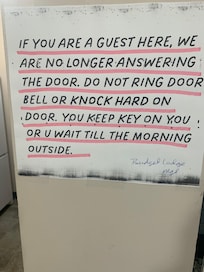 IF YOU ARE A GUEST HERE, WE
ARE NO LONGER ANSWERING
THE DOOR. DO NOT RING DOOR
BELL OR KNOCK HARD ON
DOOR. YOU KEEP KEY ON YOU
OR U WAIT TILL THE MORNING
OUTSIDE.